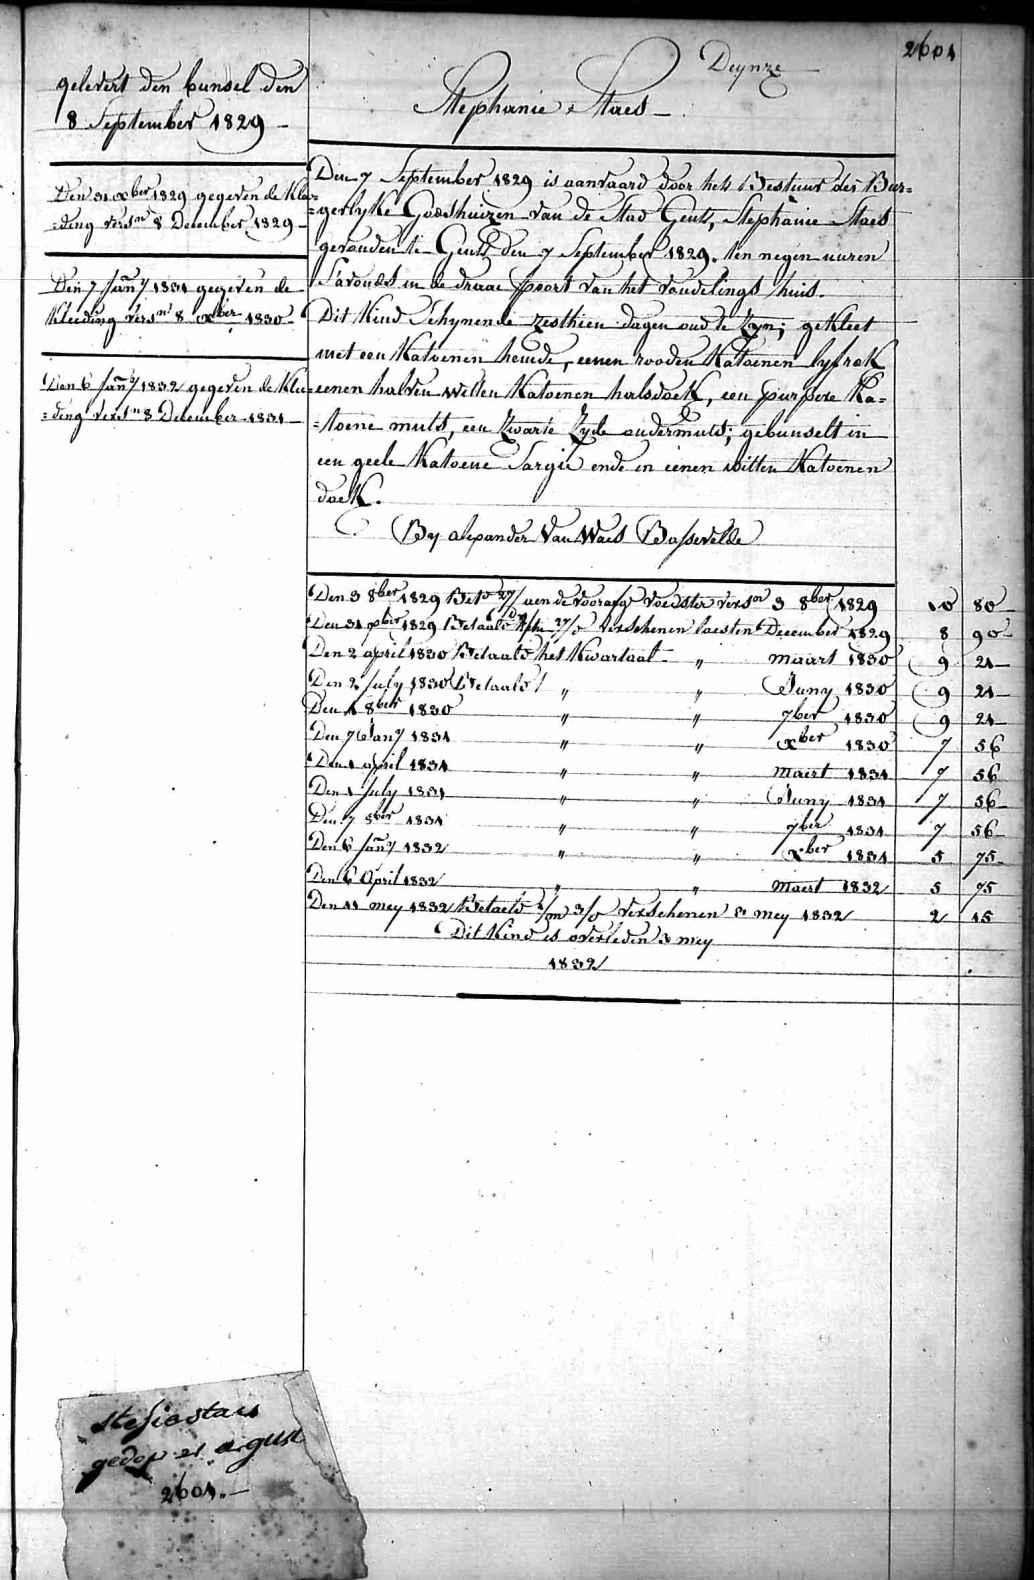 2601
Deynze
Stephanie Staes
gelevert den bunsel den
8 September 1829
Den 31 xber 1829 gegeven de Klee-
=ding versn 8 December 1829
Den 7 Jany 1831 gegeven de
Kleeding versn 8 xber 1830
Den 6 Jany 1832 gegeven de Klee
=ding versn 8 December 1831
Den 7 September 1829 is aanvaard door het Bestuur der Bur=
=gerlyke Godshuizen van de Stad Gent, Stephanie Staes
gevonden te Gent den 7 September 1829. ten negen uuren
S'avonds in de draai poort van het vondelings huis.
Dit Kind Schynende zesthien dagen oud te zyn; gekleet
met een Katoenen hemde, eenen rooden Katoenen lyfrok
eenen halven witten Katoenen halsdoek, een purpere Ka=
=toene muts, een zwarte zyde ondermuts; gebunselt in
een geele Katoene Sargie ende in eenen witten Katoenen
doek.
By alexander Van Waes Bassevelde
Den 3 8ber 1829 Bets 27/ aen de voorasg Voedster versn 3 8ber 1829 10 80
Den 31 xber 1829 Betaald 27/0 verschenen laesten December 1829 8 90
Den 2 april 1830 Betaald het Kwartaal " maart 1830 9 21
Den 2 July 1830 Betaald " " Juny 1830 9 21
Den 1 8ber 1830 " " 7ber 1830 9 21
Den 7 Jany 1831 " " xber 1830 7 56
Den 1 april 1831 " " maert 1831 7 56
Den 1 July 1831 " " Juny 1831 7 56
Den 7 8ber 1831 " " 7ber 1831 7 56
Den 6 Jany 1832 " " xber 1831 5 75
Den 6 April 1832 " " Maert 1832 5 75
Den 11 mey 1832 Betaeld 1/m 3/0 verschenen 3 mey 1832 2 15
Dit Kind is overleden 3 mey
1832
stefie stais
gedop 21 august
2601.